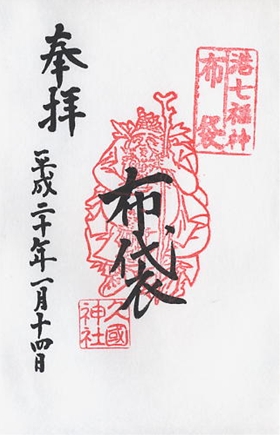 港七福神
布袋
奉拝
布袋
平成二十年一月十四日
久國
神社